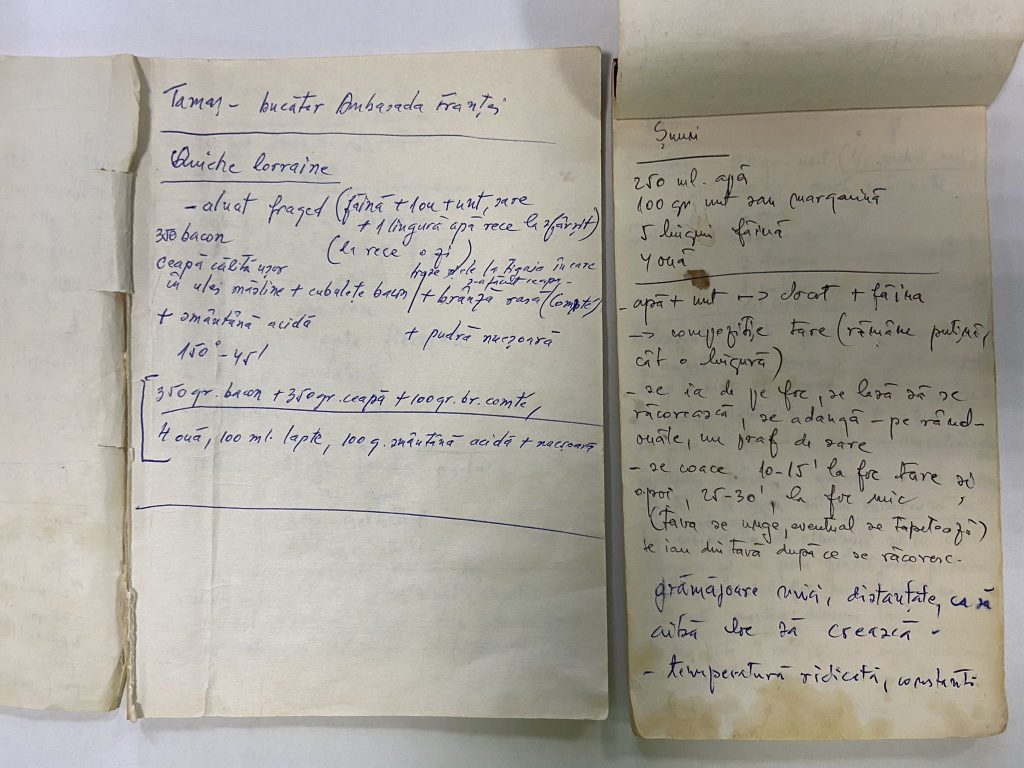 Tamaş - bucătar Ambasada Franţei
Quiche lorraine
- aluat fraged (făină + 1 ou + unt, sare
+ 1 lingură apă rece la sfârşit)
350 bacon (la rece o zi)
ceapă călită uşor
în ulei măsline + cubaleţe bacon / + brânză rasă (comté)
trage ele la tigaia în care
s-a făcut ceapa
+ smântână acidă + pudră nucşoară
150° - 45'
350 gr. bacon + 350 gr. ceapă + 100 gr. br. comté,
4 ouă, 100 ml. lapte, 100 g. smântână acidă + nucşoară
Şuuri
250 ml. apă
100 gr. unt sau margarină
5 linguri făină
4 ouă
- apă + unt → clocot + făina
→ compoziţie tare (rămâne puţină,
cât o lingură)
- se ia de pe foc, se lasă să se
răcorească, se adaugă - pe rând -
ouăle, un praf de sare
- se coace 10-15' la foc tare şi
apoi, 25-30', la foc mic
(tava se unge, eventual se tapetează)
se iau din tavă după ce se răcoresc.
grămăjoare mici, distanţate, ca să
aibă loc să crească.
- temperatură ridicată, constantă